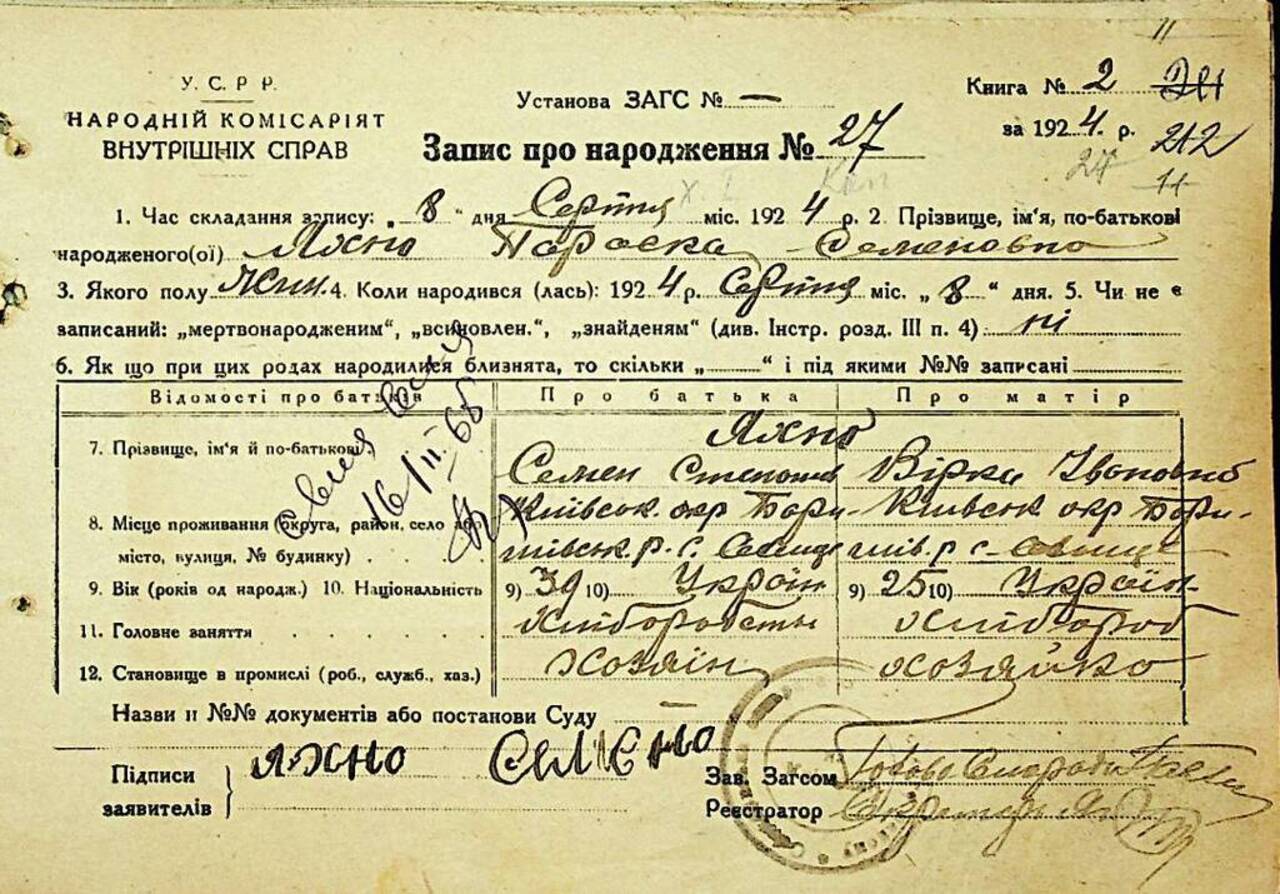 11
У. С. Р Р.
НАРОДНІЙ КОМІСАРІЯТ
ВНУТРІШНІХ СПРАВ
Установа ЗАГС № —
Запис про народження № 27
Книга № 2
за 1924 р. 212
27 11
1. Час складання запису: „8“ дня Серпня міс. 1924 р. 2. Прізвище, ім'я, по-батькові
народженого(ої) Яхно Параска Семеновна
3. Якого полу Жін. 4. Коли народився (лась): 1924 р. Серпня міс. „8“ дня. 5. Чи не є
записаний: „мертвонародженим“, „всиновлен.“, „знайденям“ (див. Інстр. розд. III п. 4) ні
6. Як що при цих родах народилися близнята, то скільки „ “ і під якими №№ записані
Відомості про батьків Про батька Про матір
7. Прізвище, ім'я й по-батькові Яхно
Семен Степанов Вірка Івановна
8. Місце проживання (округа, район, село або Київськ окр Бори- Київськ окр Бори-
місто, вулиця, № будинку) . . . . півськ. р. с. пів. р с.
9. Вік (років од народж.) 10. Національність 9) 39 10) Україн 9) 25 10) Україн-
11. Головне заняття . . . . . Хлібороб
12. Становище в промислі (роб., служб., хаз.) Хозяїн хозяйка
16/II 68
Назви и №№ документів або постанови Суду —
Підписи ЯХНО СЕМЕНО Зав. Загсом Голова
заявителів Реєстратор Секретар